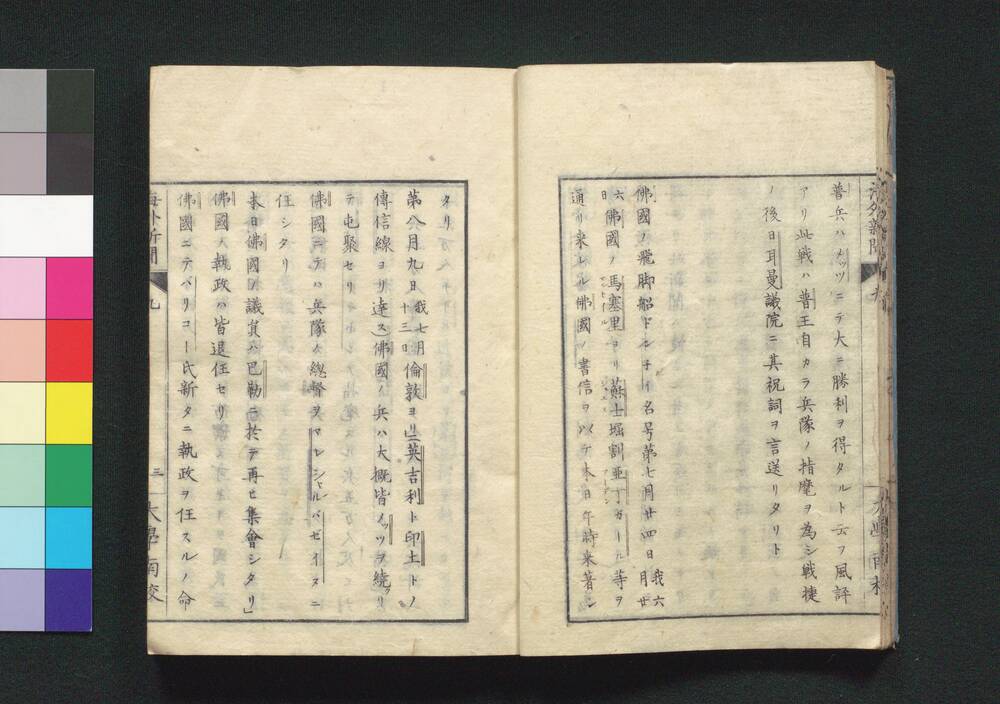 海外新聞
普兵ハメッツニテ大ニ勝利ヲ得タルト云フ風評
アリ此戦ハ普王自カラ兵隊ノ指麾ヲ為シ戦捷
ノ後日耳曼議院ニ其祝詞ヲ言送リタリト
佛國ノ飛脚船 名号第七月廿四日我六月廿
六日佛國ノ馬塞里ヨリ蘇士堀割亜丁 等ヲ
通リ来レル佛國ノ書信ヲ以テ本日午時来著シ
タリ
第八月九日我七月十三日倫敦ヨリ英吉利ト印土トノ
傳信線ヨリ達ス佛國ノ兵ハ大概皆メッツヲ繞リ
テ屯聚セリ
佛國ニテハ兵隊ノ総督ヲマレシャルバゼイヌニ
任シタリ
本日佛國ノ議員ハ巴勒ニ於テ再ヒ集會シタリ」
佛國ノ執政ハ皆退任セリ
佛國ニテパリコー氏新タニ執政ヲ任スルノ命
海外新聞
九
三
大學南校